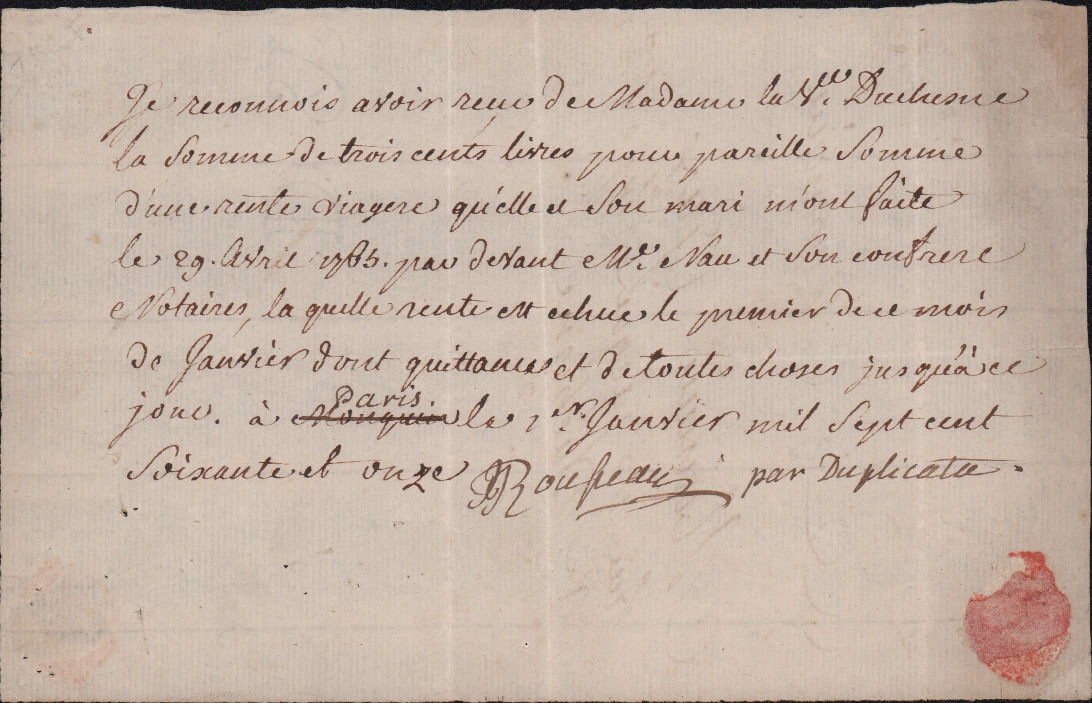 Je reconnois avoir receu de Madame la Vve. Duchesne
la Somme de trois cents livres pour pareille Somme
d'une rente viagere qu'elle et Son mari m'ont faite
le 29. Avril 1765. par devant Me. Nau et Son confrere
Notaires, la quelle rente est echue le premier de ce mois
de Janvier dont quittance et de toutes choses jusqu'à ce
jour. à Monquin Paris. le 1er. Janvier mil Sept cent
Soixante et onze JJRousseau par Duplicata.